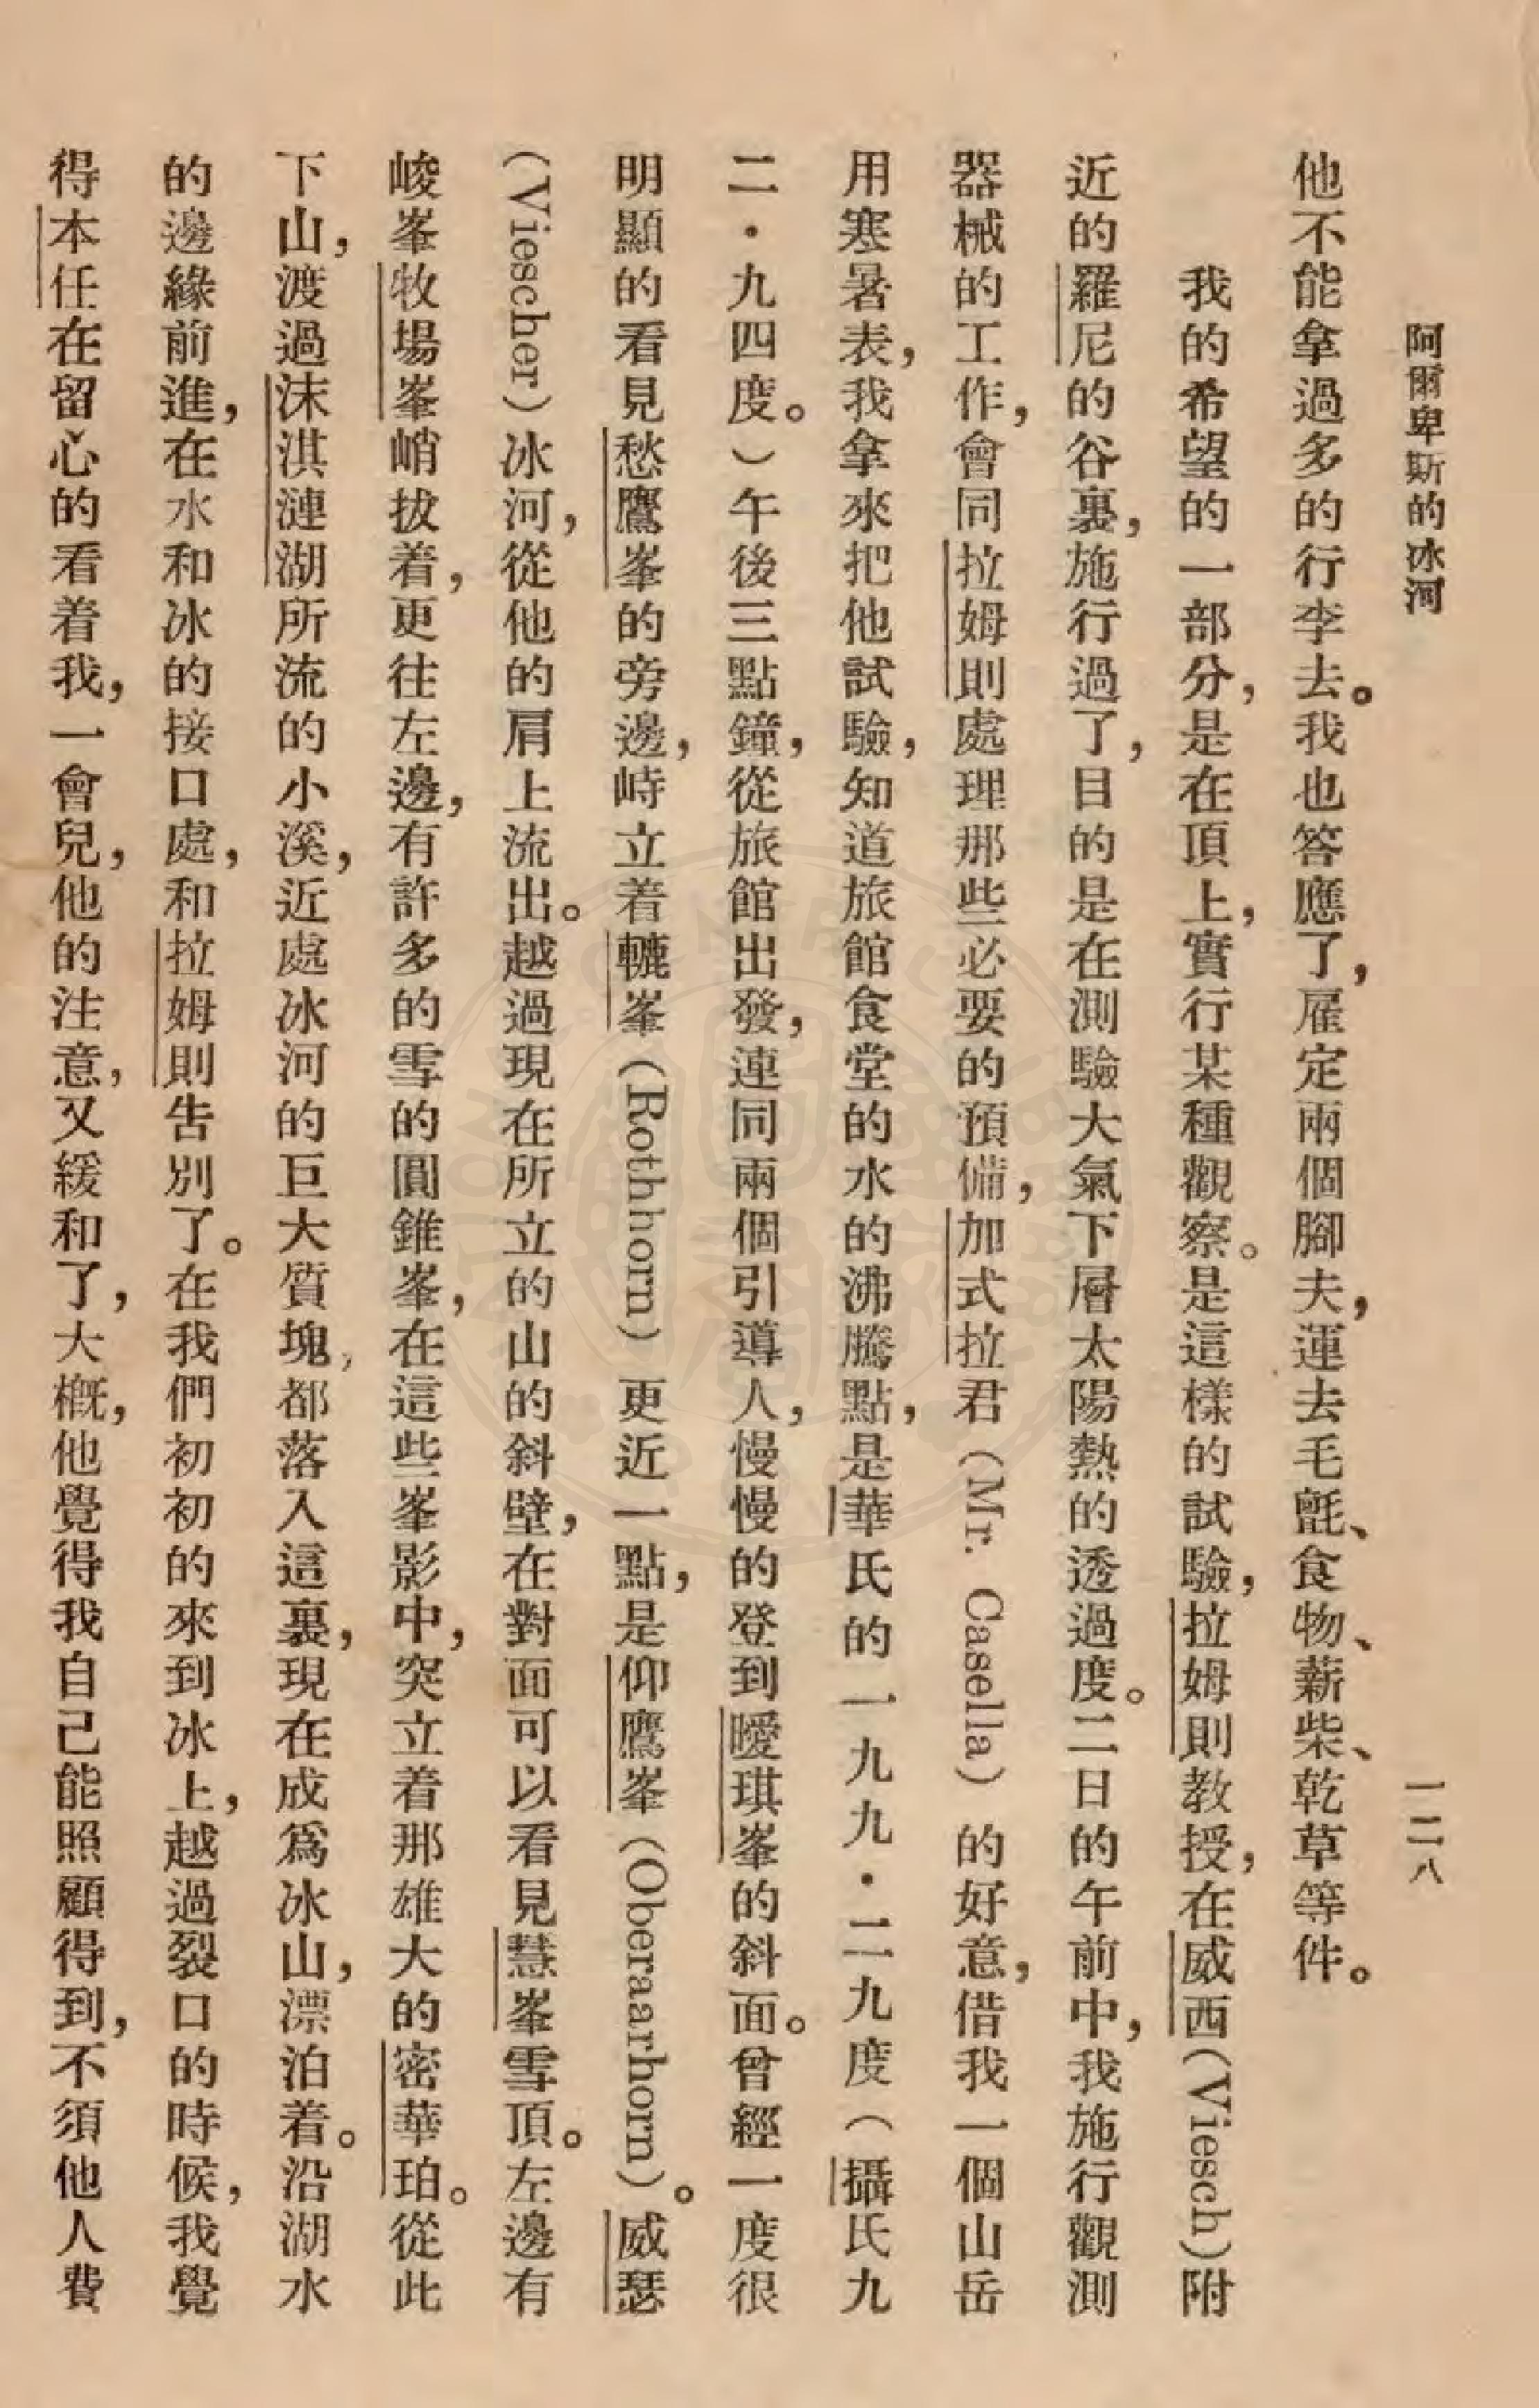 阿爾卑斯的冰河
一二八
他不能拿過多的行李去。我也答應了，雇定兩個腳夫，運去毛氈、食物、薪柴、乾草等件。
我的希望的一部分，是在頂上，實行某種觀察。是這樣的試驗，拉姆則教授，在威西(Viesch)附
近的羅尼的谷裏，施行過了，目的是在測驗大氣下層太陽熱的透過度。二日的午前中，我施行觀測
器械的工作，會同拉姆則處理那些必要的預備，加式拉君(Mr. Casella)的好意，借我一個山岳
用寒暑表，我拿來把他試驗，知道旅館食堂的水的沸騰點，是華氏的一九九・二九度(攝氏九
二・九四度。)午後三點鐘，從旅館出發，連同兩個引導人，慢慢的登到曖琪峯的斜面。曾經一度很
明顯的看見愁鷹峯的旁邊，峙立着轆峯(Rothhorn)更近一點，是仰鷹峯(Oberaarhorn)。威瑟
(Viescher)冰河，從他的肩上流出。越過現在所立的山的斜壁，在對面可以看見慧峯雪頂。左邊有
峻峯牧場峯峭拔着，更往左邊，有許多的雪的圓錐峯，在這些峯影中，突立着那雄大的密華珀。從此
下山，渡過沫淇漣湖所流的小溪，近處冰河的巨大質塊，都落入這裏，現在成爲冰山，漂泊着。沿湖水
的邊緣前進，在水和冰的接口處，和拉姆則告別了。在我們初初的來到冰上，越過裂口的時候，我覺
得本任在留心的看着我，一會兒，他的注意，又緩和了，大概，他覺得我自己能照顧得到，不須他人費